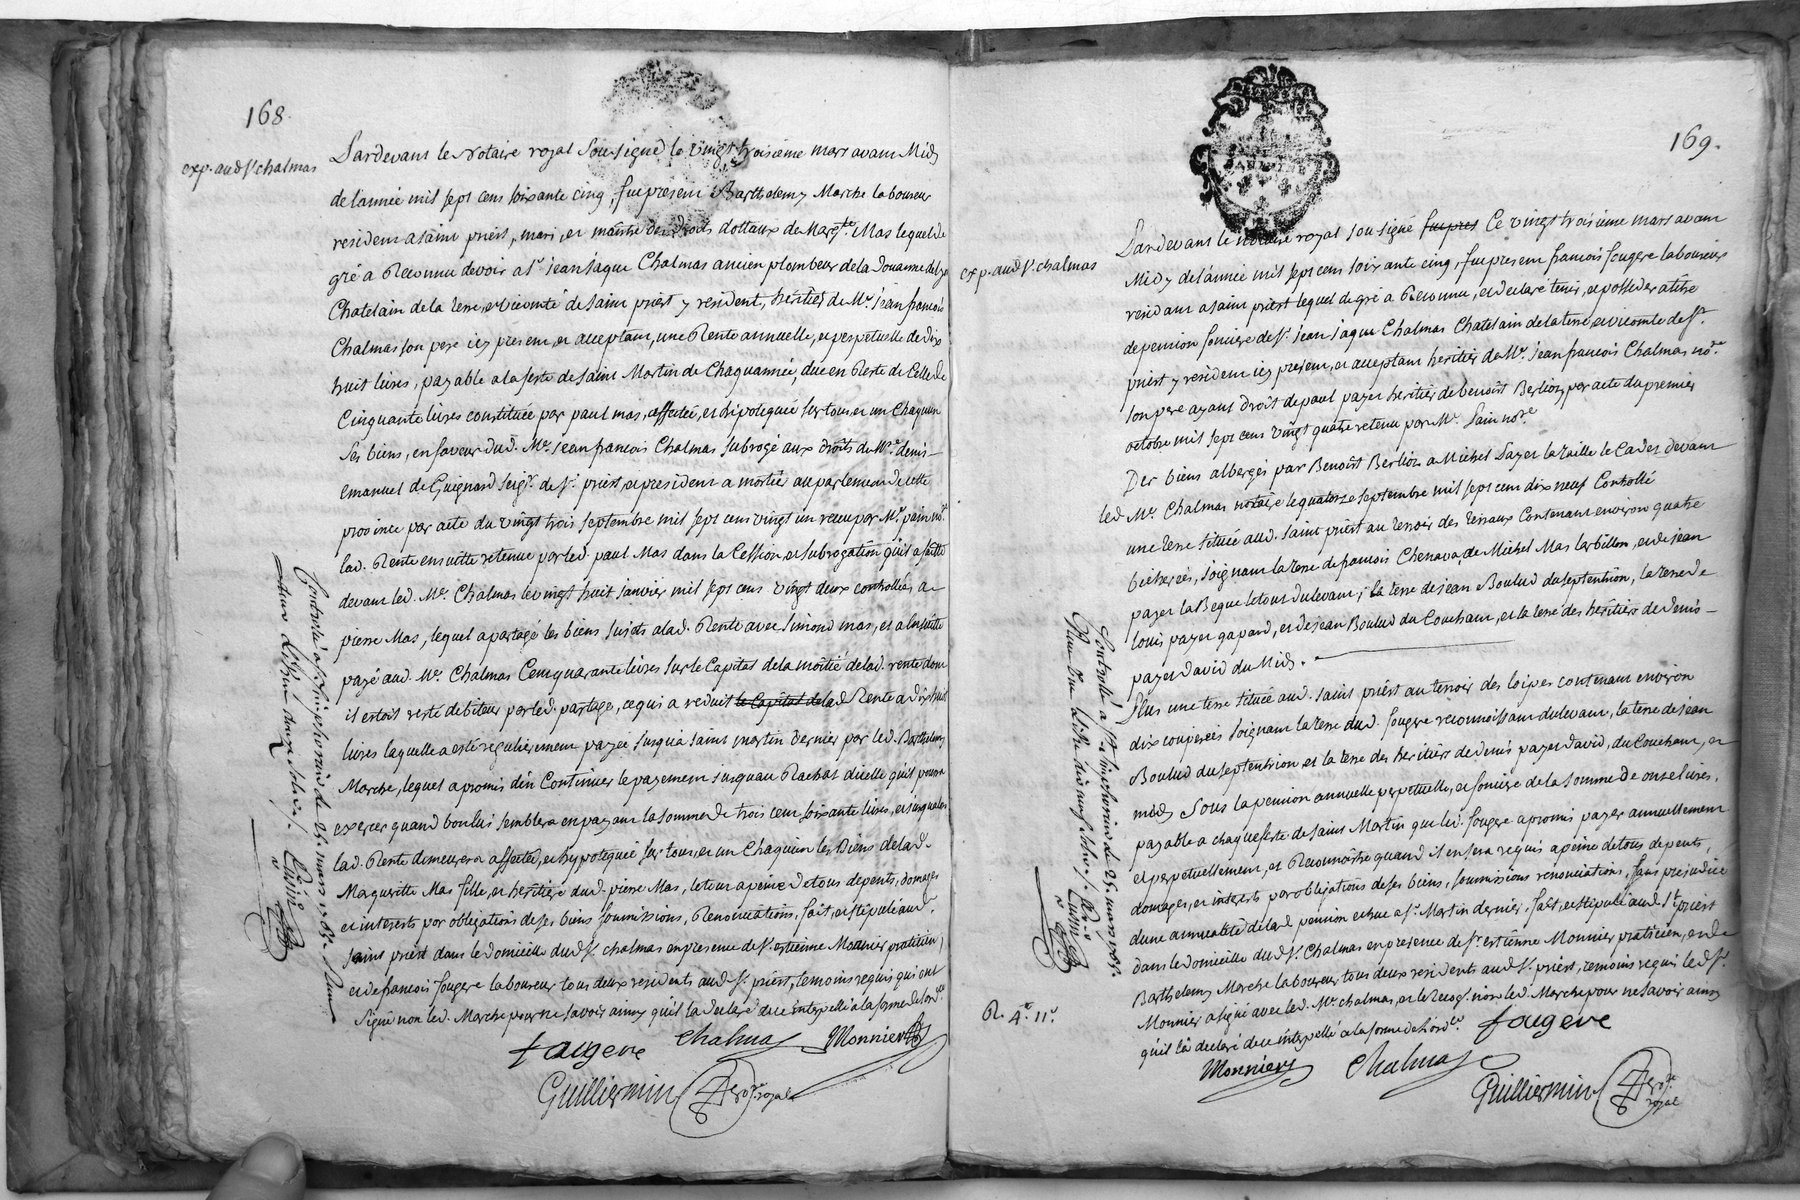 168.
exp. aud sr chalmas
Pardevant le Notaire royal Sousigné le vingt troisieme mars avant Midy
de l'année mil sept cens soixante cinq, fut present Barthelemy Marche laboureur
resident a saint priest, mari, et maitre des droits dottaux de Margte. Mas lequel de
gré a Reconnu devoir a sr. jean jaque Chalmas ancien plombeur de la Douanne de
Chatelain de la terre, et vicomté de saint priest y resident, héritier de Mr. jean francois
Chalmas son pere icy present, et acceptant, une Rente annuelle, et perpetuelle de dix
huit livres, payable a la feste de saint Martin de Chaquannée, due en Reste de Celle de
Cinquante livres constituée par paul mas, affectée, et hipotequée sur tous, et un Chaqun
ses biens, en faveur dud. Me. jean francois Chalmas subrogé aux droits de Mre. denis
emanuel de Guignard seigr. de st. priest, et president a mortié au parlement de cette
province par acte du vingt trois septembre mil sept cens vingt un receu par Me. pain nore.
lad. Rente ensuitte retenue par led. paul Mas dans la Cession, et subrogation qu'il a faitte
devant led. Me. Chalmas le vingt huit janvier mil sept cens vingt deux controllées a
pierre Mas, lequel a partagé les biens sujets a lad. Rente avec simond mas, et a la suitte
payé aud. Me. Chalmas Cent quarante livres sur le Capital de la moitié de lad. rente dont
il estoit resté debiteur par led. partage, ce qui a reduit le Capital de lad Rente a dix huit
livres laquelle a esté regulierement payée jusqu'a saint martin dernier par led. Barthelemy
Marche, lequel a promis d'en Continuer le payement jusqu'au Rachat d'icelle qu'il pourra
exercer quand bon lui semblera en payant la somme de trois cent soixante livres, et jusqu'alors
lad. Rente demeurera affectée, et hypotequée sur tous, et un Chaqu'un les Biens de lad.
Marguerite Mas fille, et heritiere dud. pierre Mas, le tout a peine de tous depents, domages
et interests par obligations de ses biens soumissions, Renonciations, fait, et stipulé aud.
saint priest dans le domicille dud sr. chalmas en presence de sr. estienne Monnier praticien,
et de francois fougere laboureur tous deux residents aud st. priest, temoins requis qui ont
signé non led. Marche pour ne savoir ainsy qu'il l'a declaré de ce interpellé a la forme de l'ordce.
fougere Chalmas Monnier
Guilliermin nore. royal
Controllé a st simphorien le 25 mars 1765
169.
exp. aud sr. chalmas
Pardevant le notaire royal sousigné fut pres Ce vingt troisieme mars avant
Midy de l'année mil sept cens soixante cinq, fut present francois fougere laboureur
resident a saint priest lequel de gré a Reconnu, et declaré tenir, et posseder a titre
de pension fonciere de sr. jean jaque Chalmas Chatelain de la terre, et vicomté de st.
priest y resident icy present, et acceptant heritier de Me. jean francois Chalmas nore.
son pere ayant droit de paul payet heritier de benoist Berlioz par acte du premier
octobre mil sept cens vingt quatre retenu par Me. pain nore.
Des biens albergés par Benoist Berlioz a Michel Payet la taille le Cadet devant
led. Me. Chalmas notaire le quatorze septembre mil sept cens dix neuf Controllé
une terre située aud. saint priest au terroir des terraux Contenant environ quatre
bicherées, joignant la terre de francois Chenava, de Michel Mas barbillon, et de jean
payet la Begue le tout du levant; la terre de jean Boulud du septentrion, la terre de
louis payet gapard, et de jean Boulud du Couchant, et la terre des heritiers de denis
payet david du Midy.
Plus une terre située aud. saint priest au terroir des loipes contenant environ
dix couperées joignant la terre dud. fougere reconnoissant du levant, la terre de jean
Boulud du septentrion et la terre des heritiers de denis payet david, du Couchant, et
midy Sous la pension annuelle perpetuelle, et fonciere de la somme de onze livres,
payable a chaque feste de saint Martin que led. fougere a promis payer annuellement
et perpetuellement, et Reconnoitre quand il en sera requis a peine de tous depents,
domages, et interests par obligations de ses biens, soumissions renonciations, sans prejudice
d'une annualité de lad pension echue a st. Martin dernier, fait, et stipulé aud st. priest
dans le domicille dud sr. Chalmas en presence de sr. estienne Monnier praticien, et de
Barthelemy Marche laboureur tous deux residents aud st. priest, temoins requis led sr.
Monnier a signé avec led. Mr. chalmas, et le Recog. non led. Marche pour ne savoir ainsy
qu'il l'a declaré de ce interpellé a la forme de l'ordce. fougere
Monnier Chalmas
Guilliermin nore. royal
Controllé a st simphorien le 25 mars 1765
R. 4s. 11s.